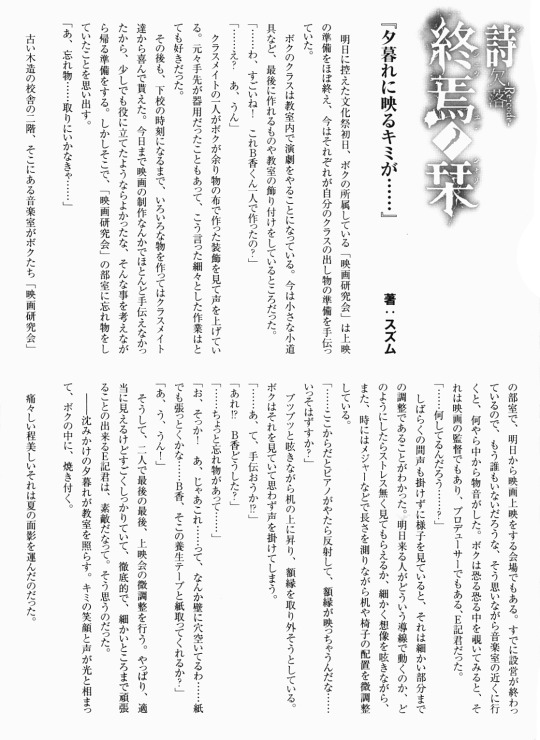 終焉ノ栞
詩
欠落
『夕暮れに映るキミが……』
著：スズム
明日に控えた文化祭初日、ボクの所属している「映画研究会」は上映
の準備をほぼ終え、今はそれぞれが自分のクラスの出し物の準備を手伝っ
ていた。
ボクのクラスは教室内で演劇をやることになっている。今は小さな小道
具など、最後に作れるものや教室の飾り付けをしているところだった。
「……わ、すごいね！　これＢ香くん一人で作ったの？」
「……え？　あ、うん」
クラスメイトの一人がボクが余り物の布で作った装飾を見て声を上げてい
る。元々手先が器用だったこともあって、こう言った細々とした作業はと
ても好きだった。
その後も、下校の時刻になるまで、いろいろな物を作ってはクラスメイト
達から喜んで貰えた。今日まで映画の制作なんかでほとんど手伝えなかっ
たから、少しでも役に立てたようならよかったな、そんな事を考えなが
ら帰る準備をする。しかしそこで、「映画研究会」の部室に忘れ物をし
ていたことを思い出す。
「あ、忘れ物……取りにいかなきゃ……」
古い木造の校舎の二階、そこにある音楽室がボクたち「映画研究会」
の部室で、明日から映画上映をする会場でもある。すでに設営が終わっ
ているので、もう誰もいないだろうな、そう思いながら音楽室の近くに行
くと、何やら中から物音がした。ボクは恐る恐る中を覗いてみると、そ
れは映画の監督でもあり、プロデューサーでもある、Ｅ記君だった。
「……何してるんだろう……？」
しばらくの間声も掛けずに様子を見ていると、それは細かい部分まで
の調整であることがわかった。明日来る人がどういう導線で動くのか、ど
のようにしたらストレス無く見てもらえるか、細かく想像を呟きながら、
また、時にはメジャーなどで長さを測りながら机や椅子の配置を微調整
している。
「……ここからだとピアノがやたら反射して、額縁が映っちゃうんだな……
いっそはずすか？」
ブツブツと呟きながら机の上に昇り、額縁を取り外そうとしている。
ボクはそれを見ていて思わず声を掛けてしまう。
「……あ、て、手伝おうか!?」
「あれ!?　Ｂ香どうした？」
「……ちょっと忘れ物があって……」
「お、そっか！　あ、じゃあこれ……って、なんか壁に穴空いてるわ……紙
でも張っとくかな……Ｂ香、そこの養生テープと紙取ってくれるか？」
「あ、う、うん！」
そうして、二人で最後の最後、上映会の微調整を行う。やっぱり、適
当に見えるけどすごくしっかりていて、徹底的で、細かいところまで頑張
ることの出来るＥ記君は、素敵だなって。そう思うのだった。
――沈みかけの夕暮れが教室を照らす。キミの笑顔と声が光と相まっ
て、ボクの中に、焼き付く。
痛々しい程美しいそれは夏の面影を運んだのだった。